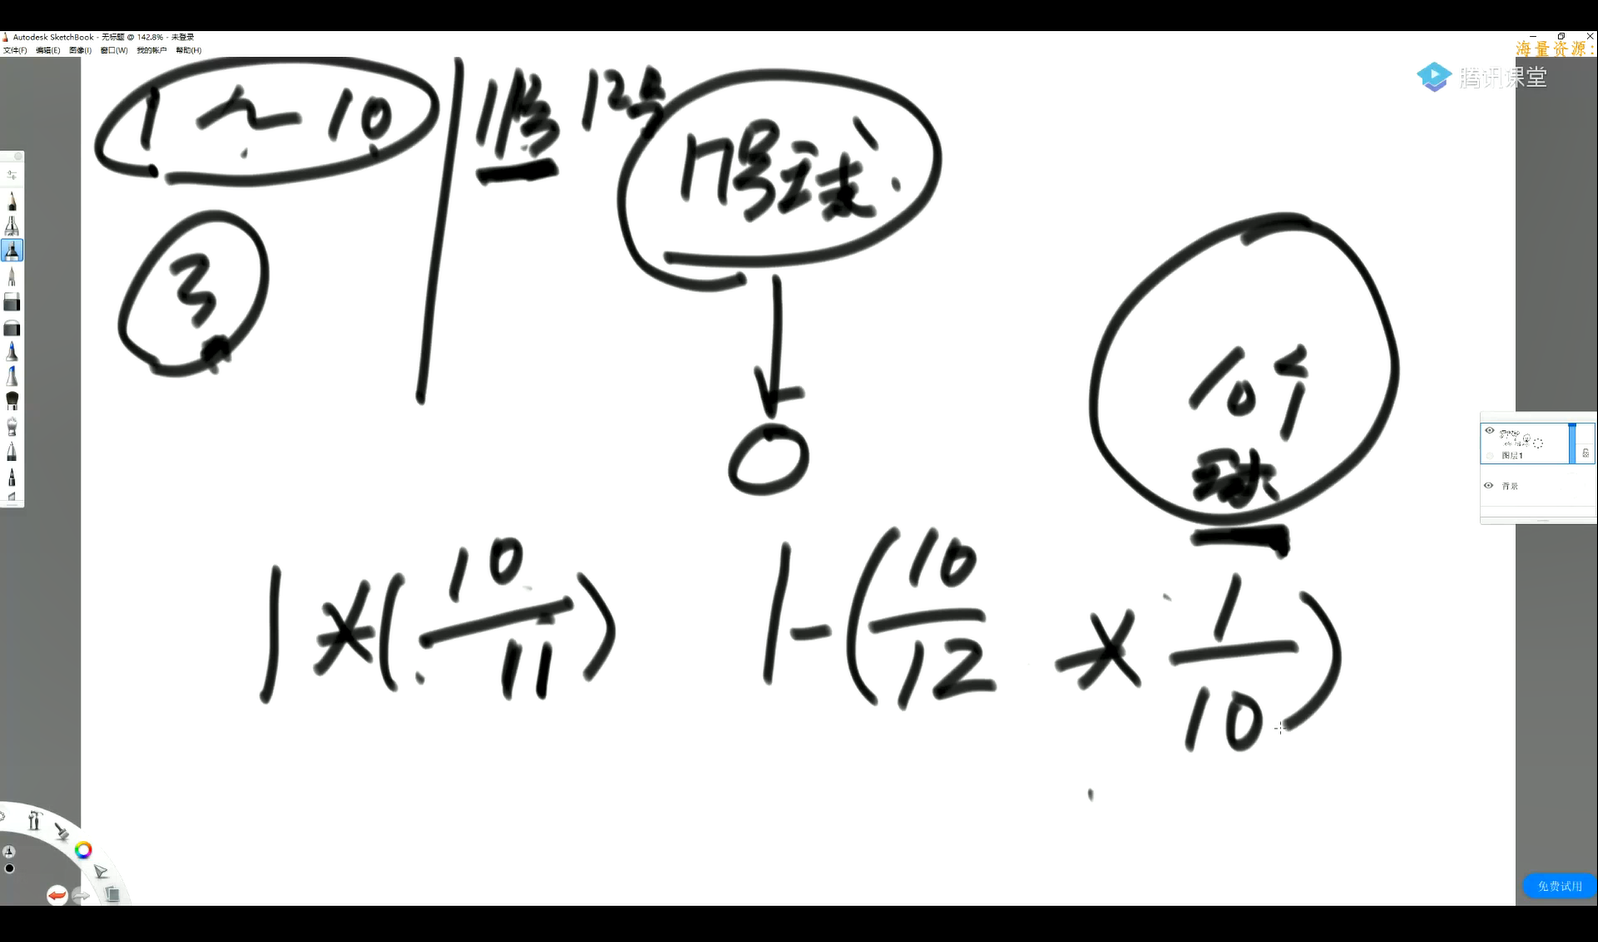 Autodesk SketchBook - 无标题 @ 142.8% - 未登录
文件(F) 编辑(E) 图像(I) 窗口(W) 我的帐户 帮助(H)
海量资源:
腾讯课堂
1 ~ 10
11号 12号
17号球
3
10个
球
1 * ( 10/11 )
1 - ( 10/12 * 1/10 )
图层1
背景
免费试用